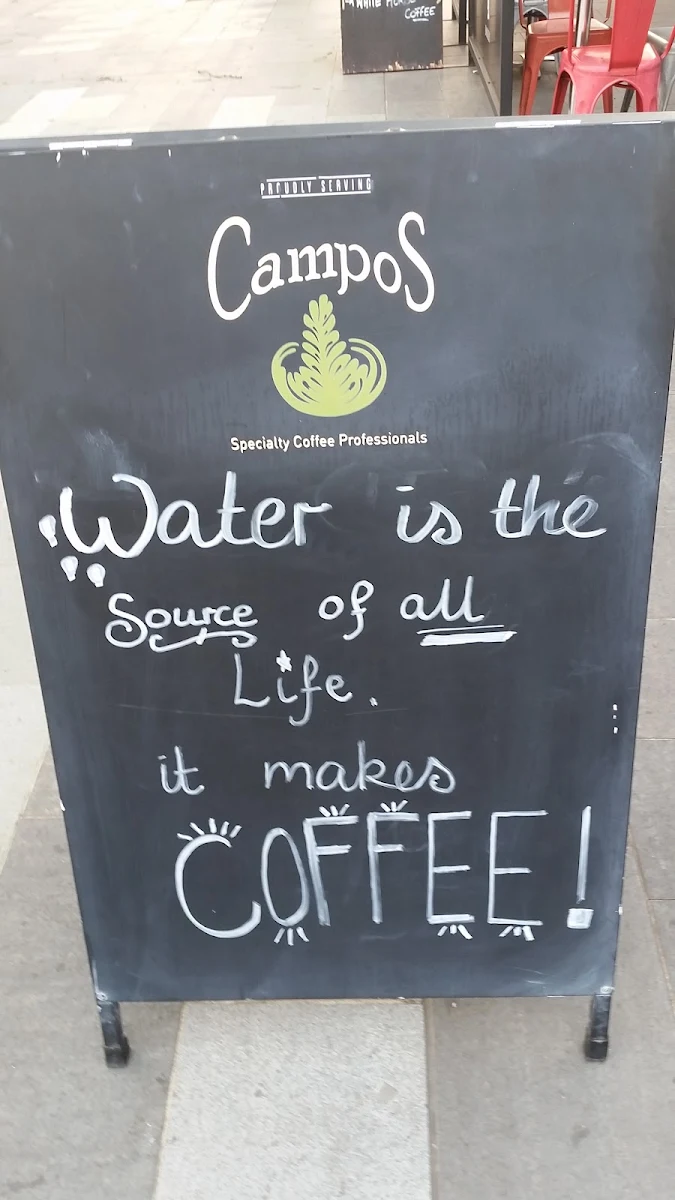 WHITE HORSE
COFFEE
PROUDLY SERVING
Campos
Specialty Coffee Professionals
Water is the
Source of all
Life.
it makes
COFFEE!